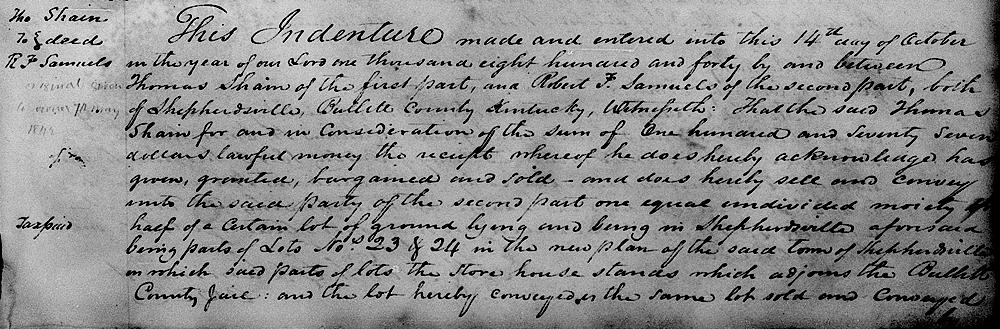 Tho Shain
To } deed
R F Samuels
original
1844
Taxpaid
This Indenture made and entered into this 14th day of October
in the year of our Lord one thousand eight hundred and forty by and between
Thomas Shain of the first part, and Robert F. Samuels of the second part, both
of Shepherdsville, Bullitt County Kentucky, Witnesseth: That the said Thomas
Shain for and in Consideration of the sum of One hundred and Seventy Seven
dollars lawful money the receipt whereof he does hereby acknowledge has
given, granted, bargained and sold - and does hereby sell and convey
unto the said party of the second part one equal undivided moiety or
half of a Certain lot of ground lying and being in Shepherdsville aforesaid
being parts of Lots Nos 23 & 24 in the new plan of the said town of Shepherdsville
on which said parts of lots the Store house stands which adjoins the Bullitt
County Jail: and the lot hereby conveyed is the same lot sold and Conveyed